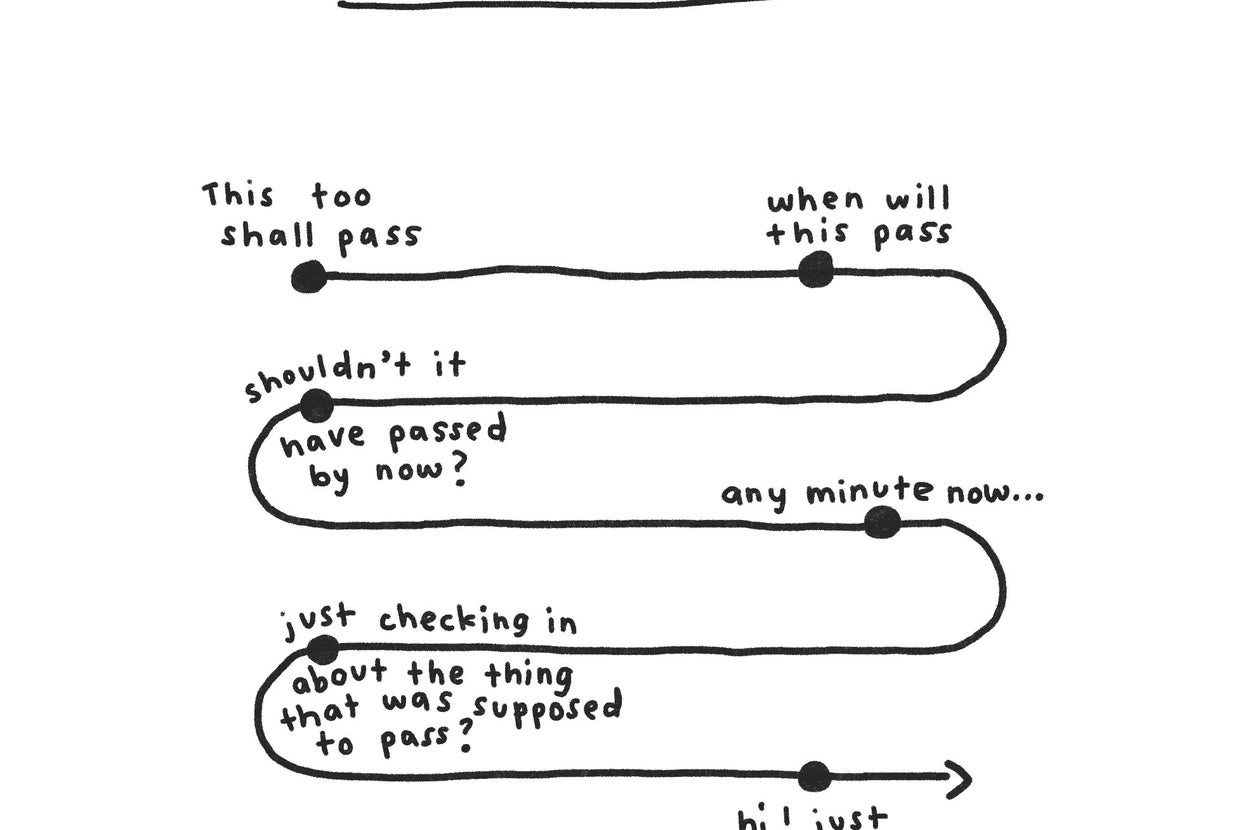 This too
shall pass
when will
this pass
shouldn't it
have passed
by now?
any minute now...
just checking in
about the thing
that was supposed
to pass?
hi! just